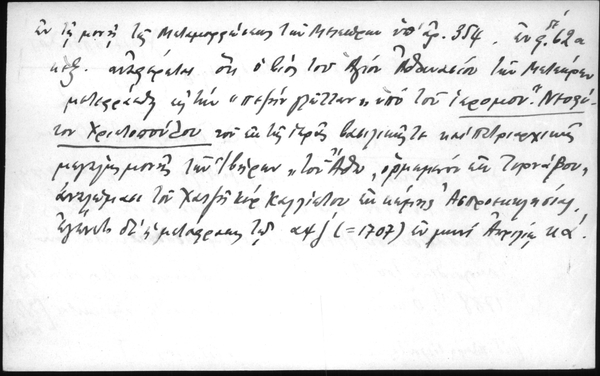 ἐν τῇ μονῇ τῆς Μεταμορφώσεως τῶν Μετεώρων ὑπ' ἀρ. 354, ἐν φ. 62α
κἑξ. ἀναφέρεται ὅτι ὁ βίος τοῦ Ἁγίου Ἀθανασίου τῶν Μετεώρων
μετεφράσθη εἰς τὴν "πεζὴν γλῶτταν" ὑπὸ τοῦ ἱερομον. "Νεοφύ-
του Χριστοπούλου τοῦ ἐκ τῆς ἱερᾶς βασιλικῆς τε καὶ πατριαρχικῆς
μεγάλης μονῆς τῶν Ἰβήρων "τοῦ Ἄθω, ὁρμωμένου ἐκ Τορνάβου,
ἀναλώμασι τοῦ Χατζῆ κὺρ ἐκ κώμης Ἀσπροεκκλησίας,
ἐγένετο δὲ ἡ μετάφρασις τῷ αψζ (=1707) ἐν μηνὶ Ἀπριλίῳ κα'.